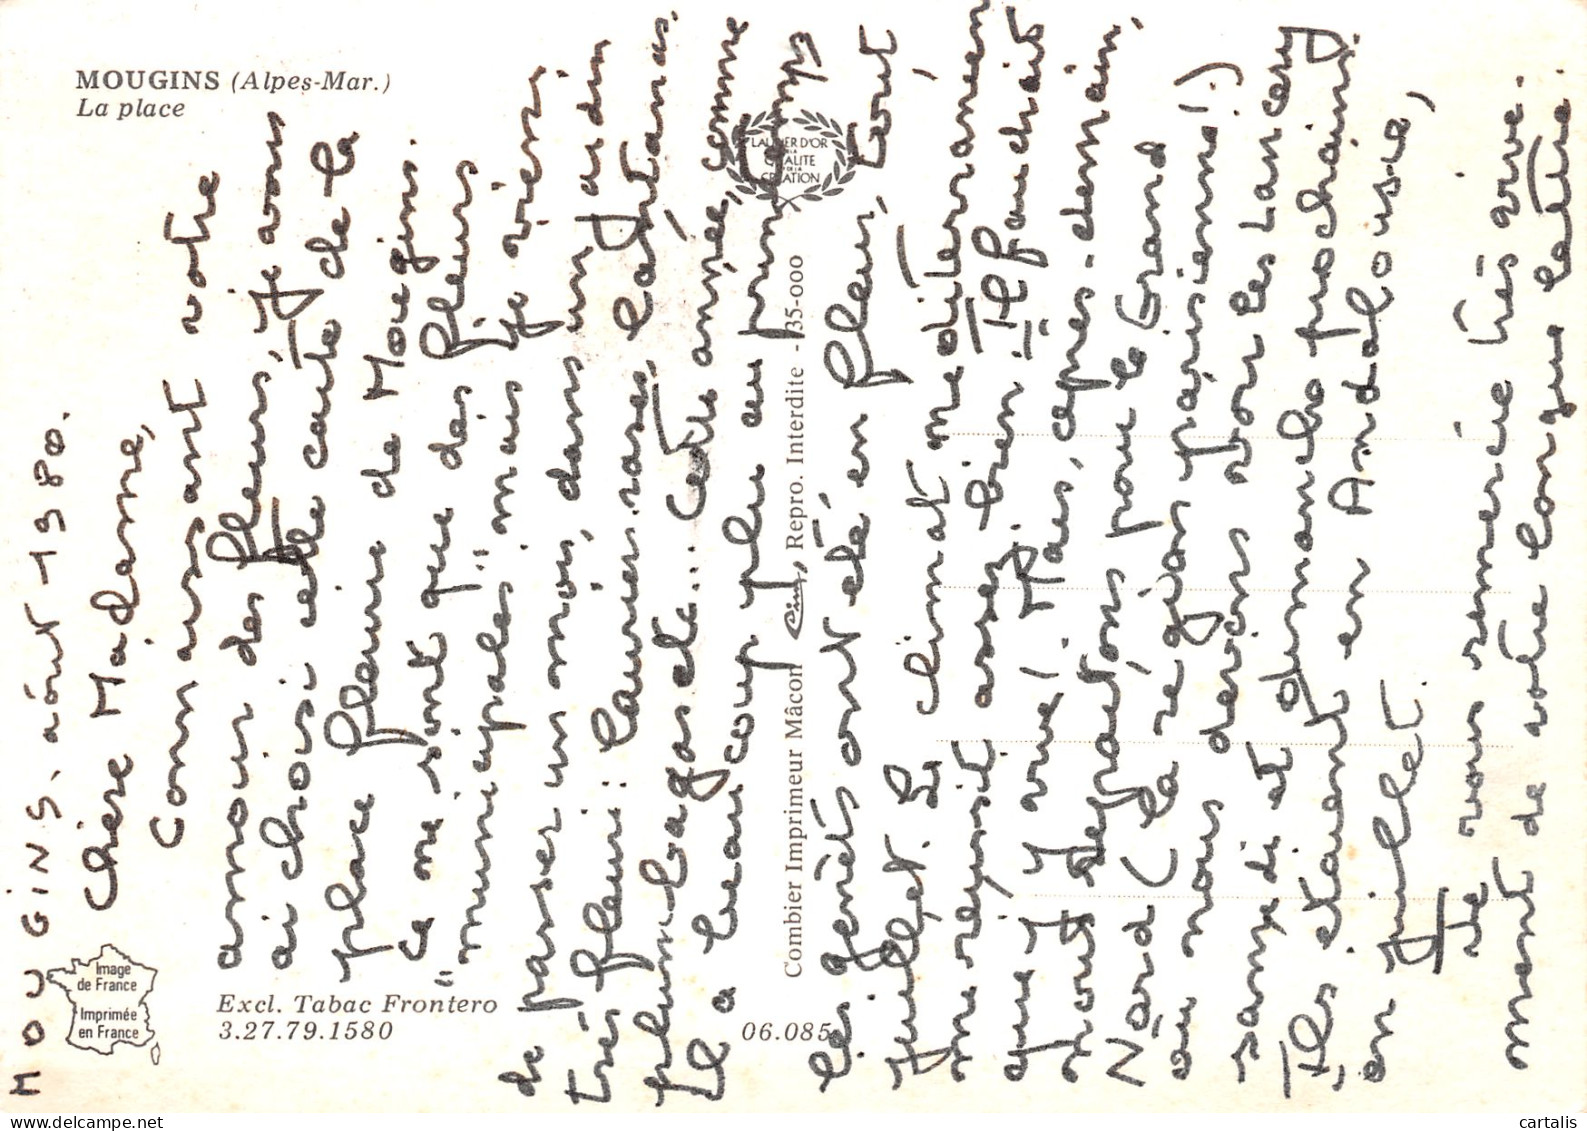 MOUGINS (Alpes-Mar.)
La place
MOUGINS, août 1980.
Chère Madame,
Connaissant votre
amour des fleurs, je vous
ai choisi cette carte de la
place fleurie de Mougins.
Ce ne sont que des fleurs
"municipales" mais je viens
de passer un mois, dans un jardin
très fleuri : lauriers roses, lantanas,
plumbagos etc... Cette année, comme
il a beaucoup plu au printemps
les genêts ont été en fleur, tout
juillet. Le climat méditerranéen
me réussit assez bien. Il faudrait
que j'y vive ! Mais, après-demain,
nous repartons pour le Grand
Nord (la région parisienne !)
où nous devons voir les Lancery
samedi et dimanche prochains.
Ils étaient en Andalousie,
en juillet.
Je vous remercie très vive-
ment de votre longue lettre.
LAURIER D'OR
DE LA
QUALITE
DE LA
CREATION
Combier Imprimeur Mâcon Cim, Repro. Interdite - 35-000
Image
de France
Imprimée
en France
Excl. Tabac Frontero
3.27.79.1580
06.085
cartalis